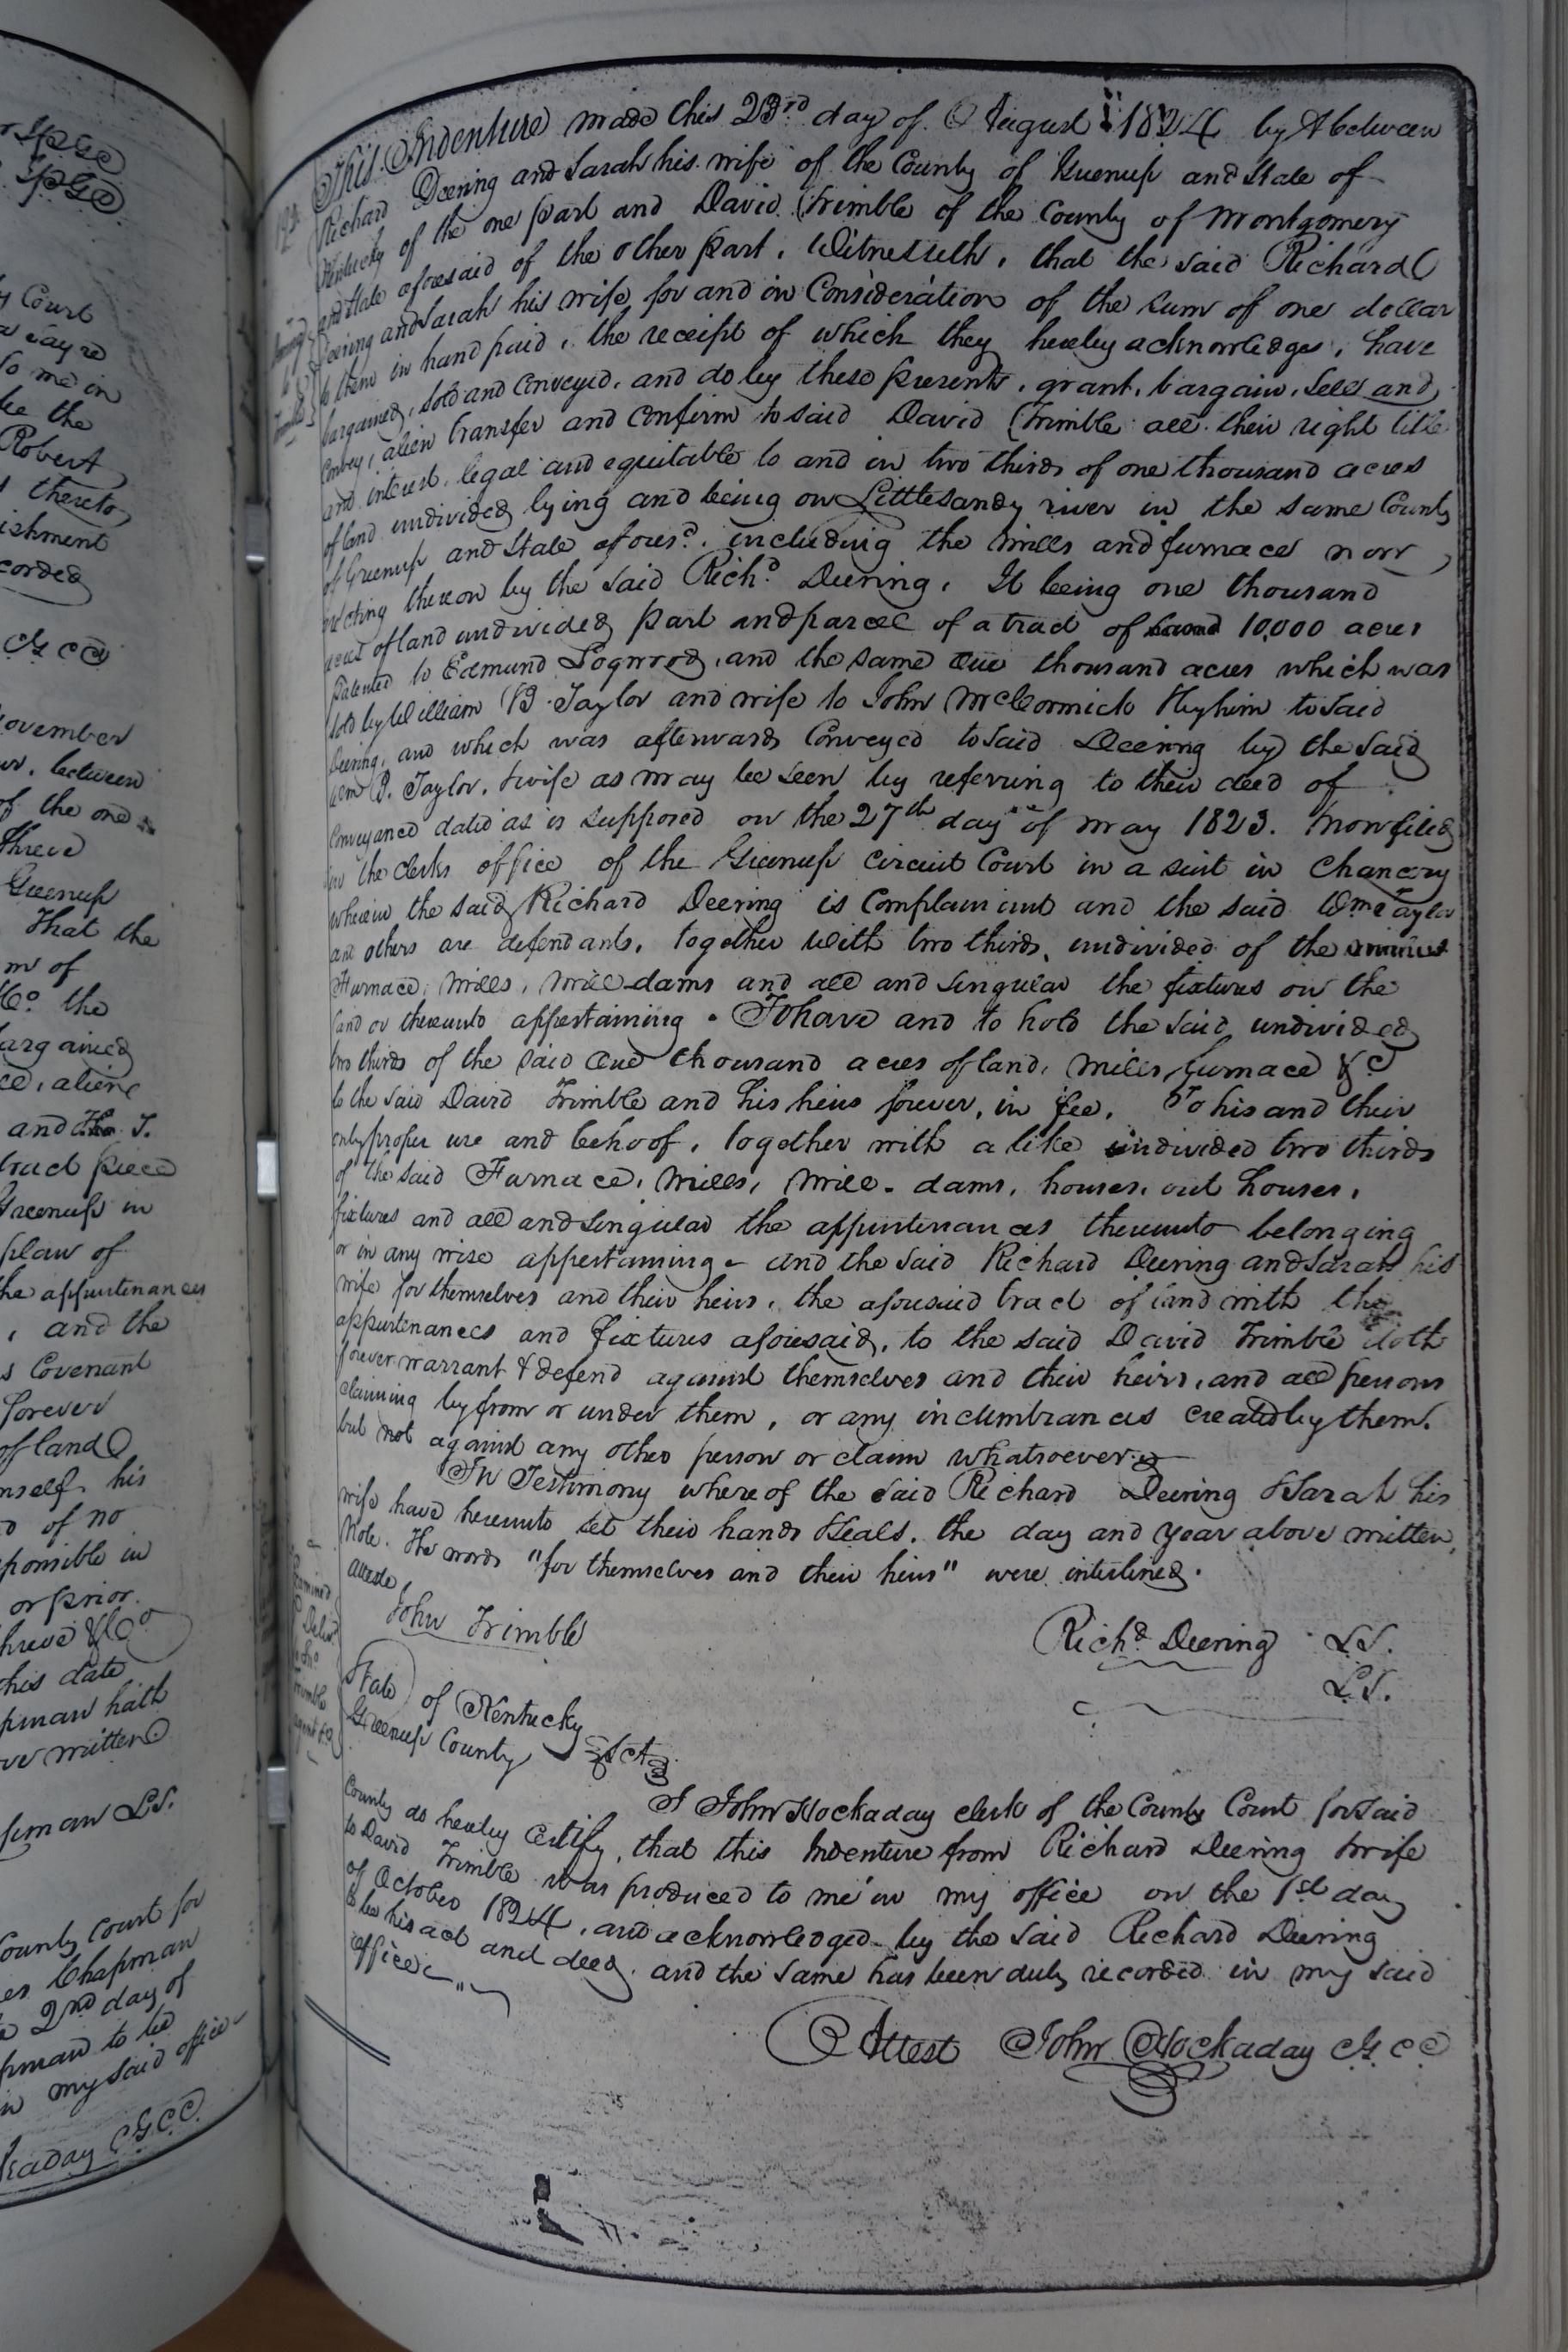 This Indenture made this 23rd day of August 1824 by & between
Richard Deering and Sarah his wife of the County of Greenup and State of
Kentucky of the one part and David Trimble of the County of Montgomery
and State aforesaid of the other part, Witnesseth, that the said Richard
Deering and Sarah his wife for and in Consideration of the sum of one dollar
to them in hand paid, the receipt of which they hereby acknowledge, have
bargained, sold and conveyed, and do by these presents, grant, bargain, sell and
Convey, alien transfer and confirm to said David Trimble all their right title
and interest, legal and equitable to and in two thirds of one thousand acres
of land undivided lying and being on Little Sandy river in the same County
of Greenup and State aforesd. including the mills and furnace now
erecting thereon by the said Richd Deering, It being one thousand
acres of land undivided part and parcel of a tract of 10,000 acres
patented to Edmund Logwood, and the same One thousand acres which was
sold by William B. Taylor and wife to John McCormick & by him to said
Deering, and which was afterwards Conveyed to said Deering by the said
Wm B. Taylor, & wife as may be seen by referring to their deed of
Conveyance dated as is supposed on the 27th day of may 1823. now filed
in the clerks office of the Greenup Circuit Court in a suit in Chancery
wherein the said Richard Deering is Complainant and the said Wm Taylor
and others are defendants, together with two thirds, undivided of the
Furnace, Mills, Mill-dams and all and singular the fixtures on the
land or thereunto appertaining. To have and to hold the said undivided
two thirds of the said One thousand acres of land, mills, furnace &c
to the said David Trimble and his heirs forever, in fee, To his and their
only proper use and behoof, together with a like undivided two thirds
of the said Furnace, Mills, Mill-dams, houses, out houses,
fixtures and all and singular the appurtenances thereunto belonging
or in any wise appertaining - and the said Richard Deering and Sarah his
wife for themselves and their heirs, the aforesaid tract of land with the
appurtenances and fixtures aforesaid, to the said David Trimble doth
forever warrant & defend against themselves and their heirs, and all persons
claiming by from or under them, or any incumbrances created by them.
but not against any other person or claim whatsoever.
In Testimony where of the said Richard Deering & Sarah his
wife have hereunto set their hands & seals, the day and year above written,
Note. The words "for themselves and their heirs" were interlined.
Atteste,
John Trimble
Richd Deering LS.
LS.
State of Kentucky
Greenup County Sct
I John Hockaday clerk of the County Court for said
County do hereby Certify, that this Indenture from Richard Deering & wife
to David Trimble was produced to me in my office on the 1st day
of October 1824, and acknowledged by the said Richard Deering
to be his act and deed, and the same has been duly recorded in my said
office
Attest John Hockaday CGCC